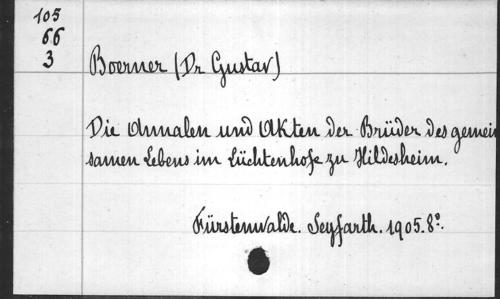 105
66
3
Boerner (Dr Gustav)
Die Annalen und Akten der Brüder des gemein
samen Lebens im Lüchtenhofe zu Hildesheim.
Fürstenwalde. Seyfarth. 1905. 8º.